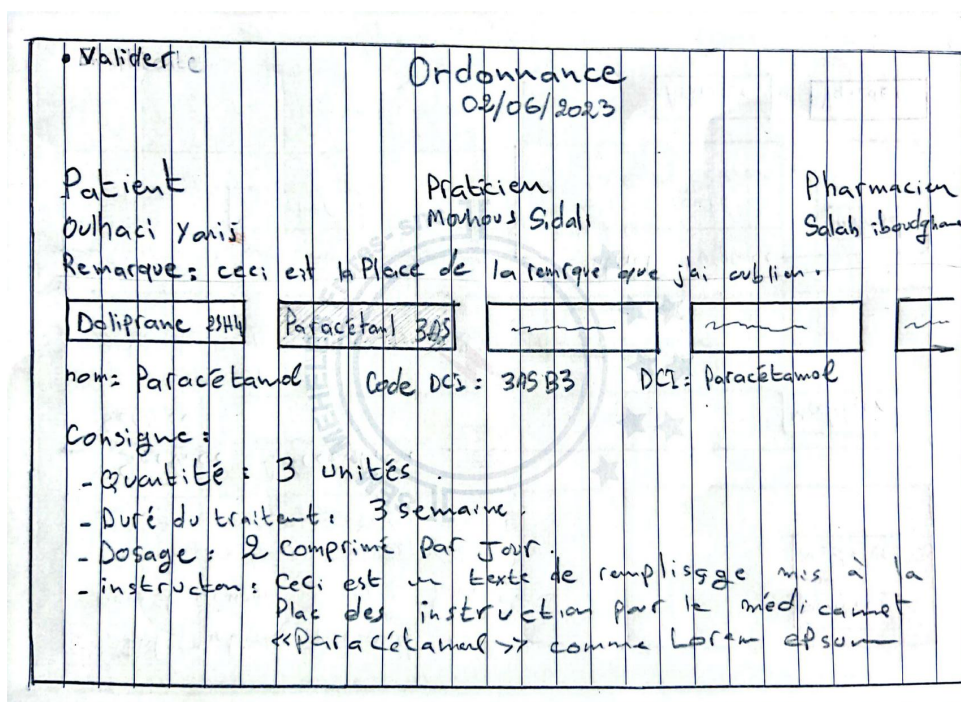 • Valider
Ordonnance
02/06/2023
Patient Praticien Pharmacien
Oulhaci Yanis Mouhous Sidali Salah iboudghane
Remarque : ceci est la Place de la remrque que j'ai oublien .
Doliprane Paracétaml 3A5
nom: Paracétamol Code DCI : 3A5B3 DCI: Paracétamol
Consigne :
- Quantité : 3 unités .
- Duré du traitent : 3 semaine .
- Dosage : 2 comprimé par Jour .
- instructon : Ceci est un texte de remplissge mis à la
Plac des instruction pour le médicamet
«Paracétamol» comme Lorem epsum